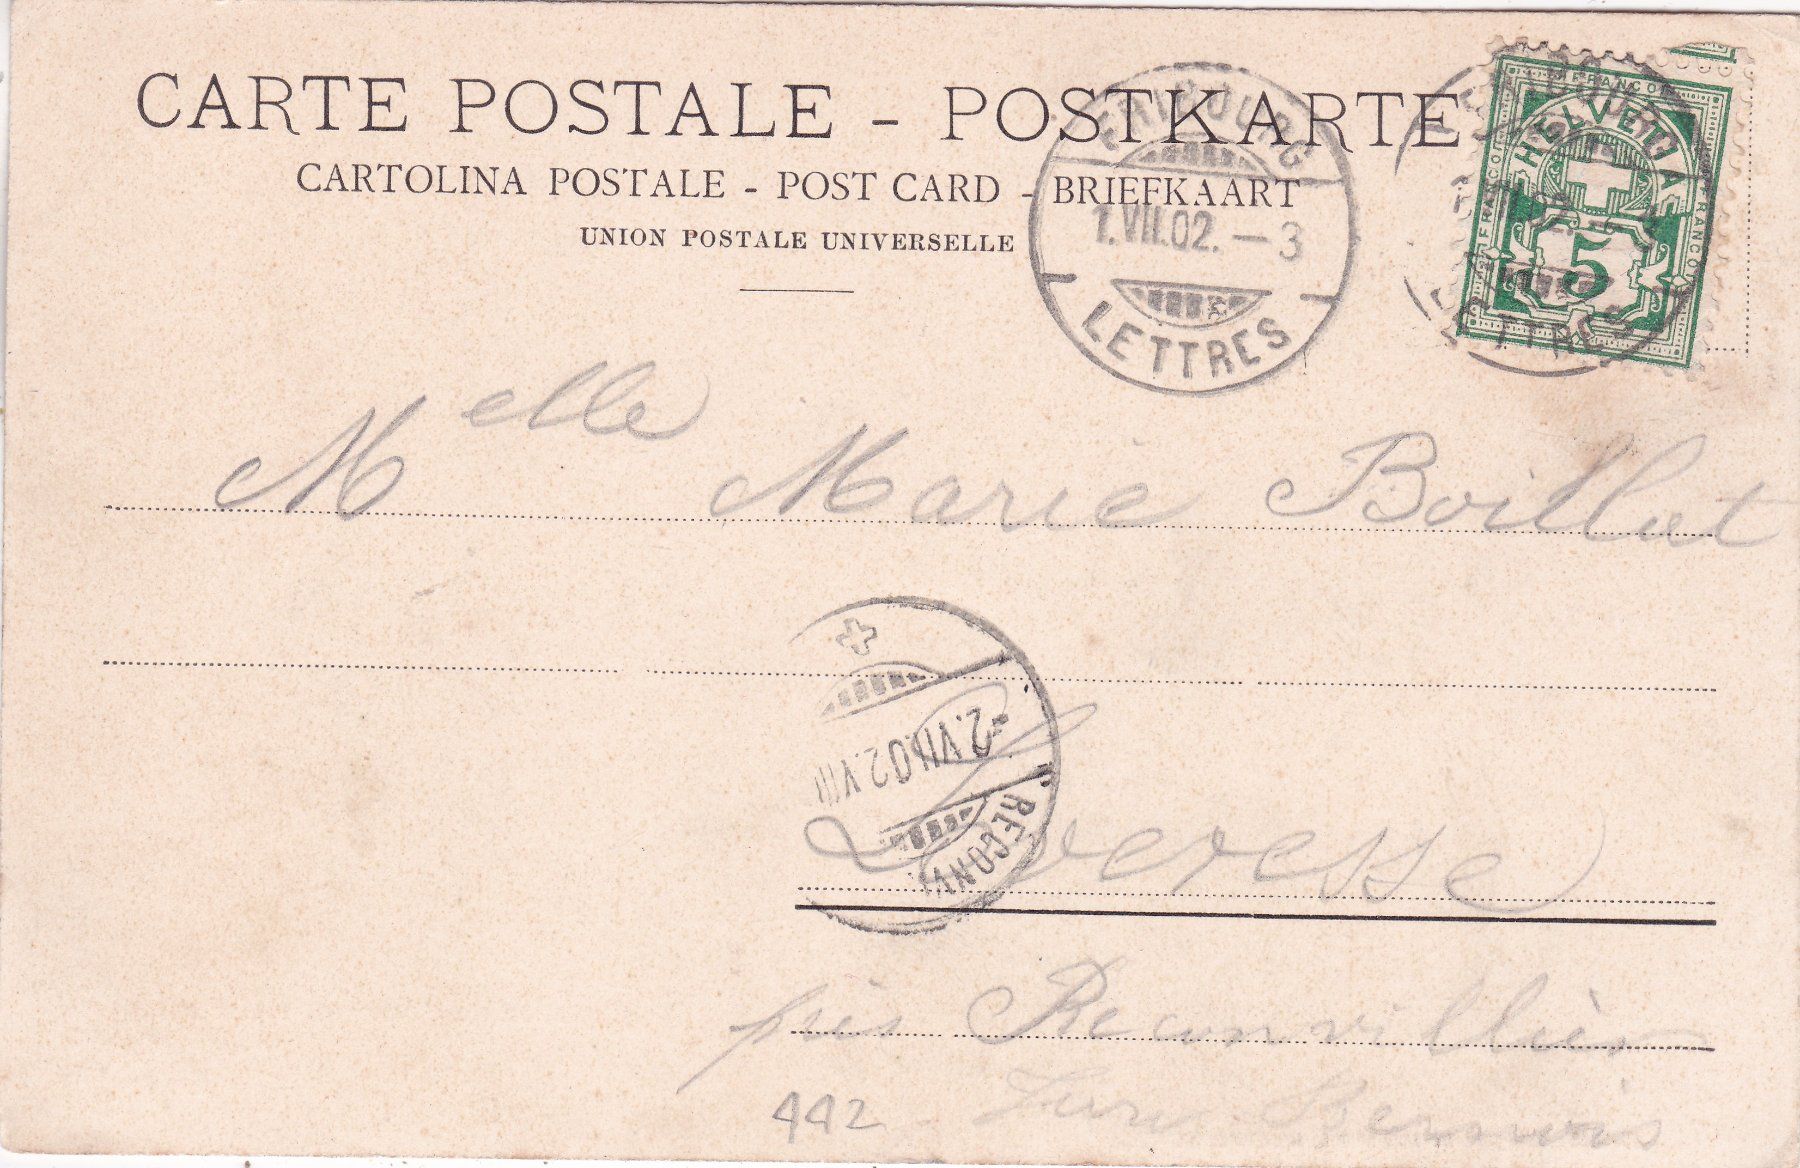 CARTE POSTALE - POSTKARTE
CARTOLINA POSTALE - POST CARD - BRIEFKAART
UNION POSTALE UNIVERSELLE
FRIBOURG
1.VII.02. - 3
LETTRES
FRANCO
HELVETIA
FRANCO
FRANCO
5
LETTRES
Melle Marie Boillat
-2.VII.02.VIII
RECONVI
Loveresse
près Reconvillier
Jura Bernois
442